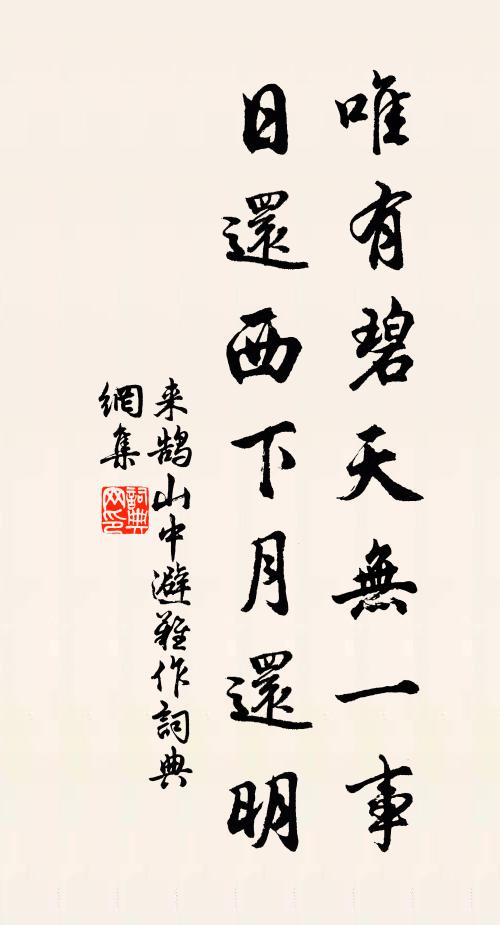 唯有碧天無一事
日還西下月還明
来鹄山中避難作詞典
網集
詞典
网印